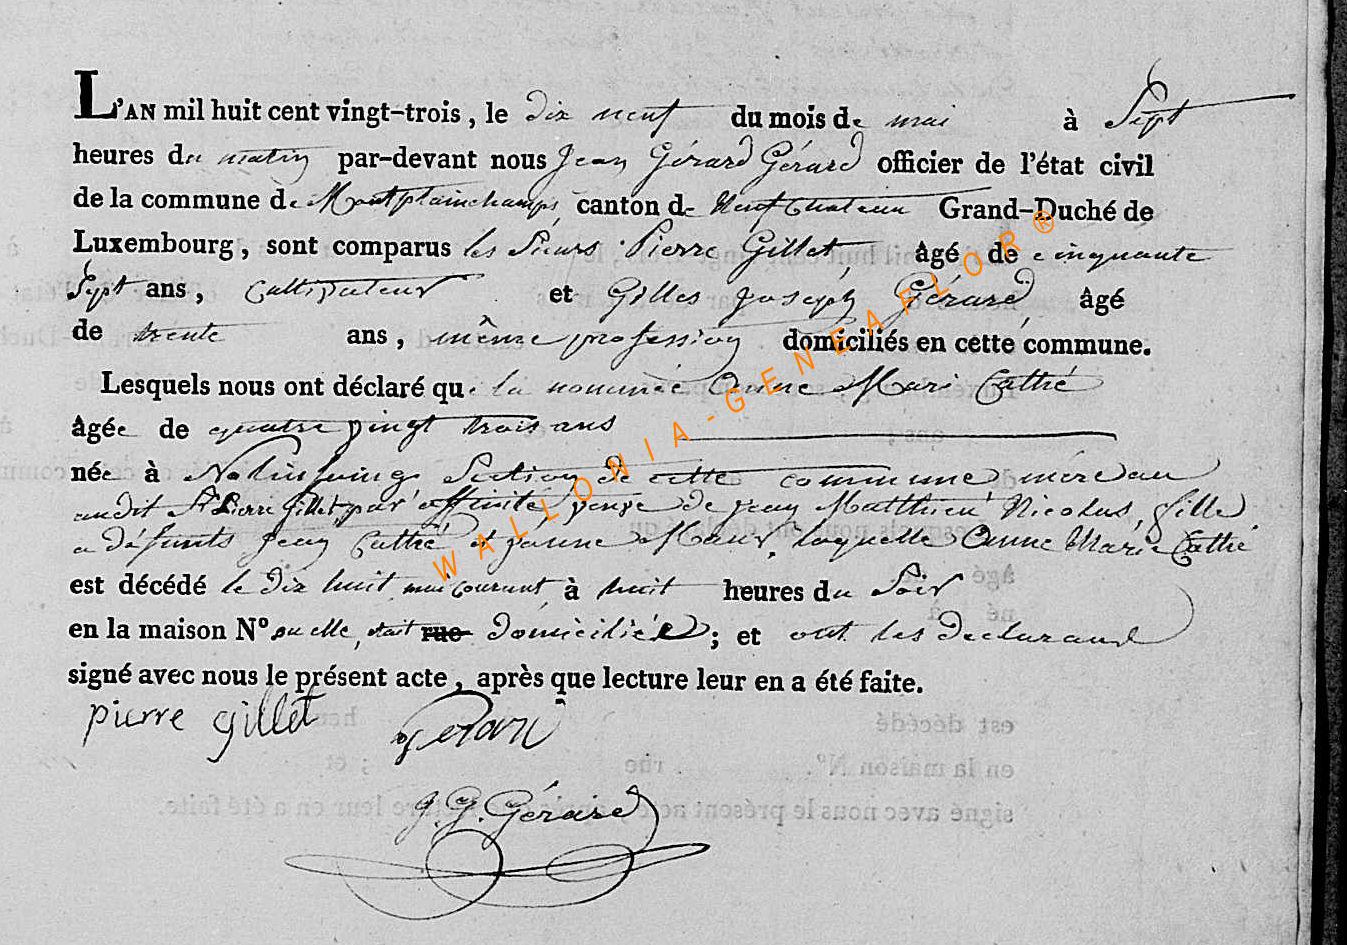 L'AN mil huit cent vingt-trois, le dix neuf du mois de mai à Sept
heures du matin par-devant nous Jean Gérard Gérard officier de l'état civil
de la commune de Montplainchamps, canton de Neufchateau Grand-Duché de
Luxembourg, sont comparus les Sieurs Pierre Gillet, âgé de cinquante
Sept ans, Cultivateur et Gilles Joseph Gérard, âgé
de trente ans, même profession domiciliés en cette commune.
Lesquels nous ont déclaré que la nommée Anne Mari Cathé
âgée de quatre vingt trois ans
née à Nolinfaing Section de cette commune mère au
audit Sr Pierre Gillet par affinité, veuve de Jean Matthieu Nicolas, fille
a défunts Jean Cathé et Jeanne laquelle Anne Marie Cathé
est décédé le dix huit mai courant à huit heures du Soir
en la maison N° ou elle était rue domiciliée; et ont les declarans
signé avec nous le présent acte, après que lecture leur en a été faite.
pierre gillet gerard
J. G. Gérard
WALLONIA-GENEAFLOR®